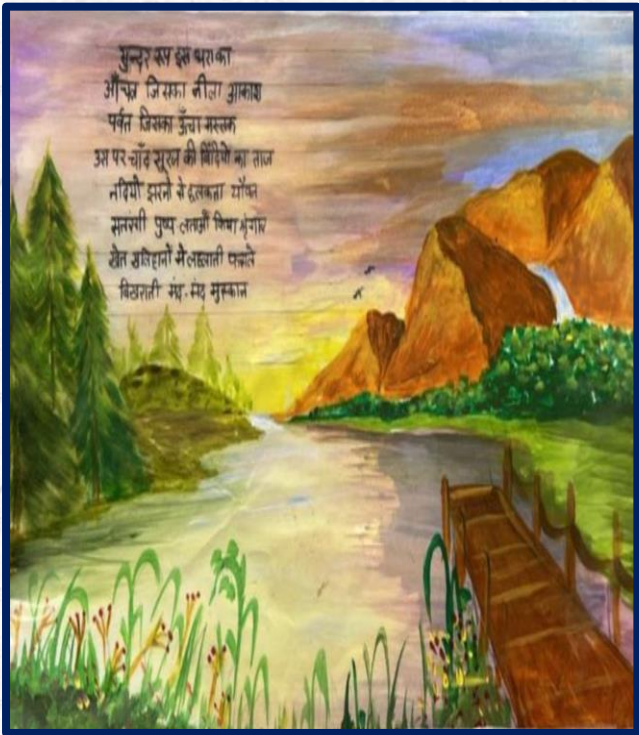 सुन्दर रूप इस धरा का
आँचल जिसका नीला आकाश
पर्वत जिसका ऊँचा मस्तक
उस पर चाँद सूरज की बिंदियों का ताज
नदियों झरनों से छलकता यौवन
सतरंगी पुष्प लताओं किया श्रृंगार
खेत खलिहानों में लहलाती फसले
बिखराती मंद-मंद मुस्कान